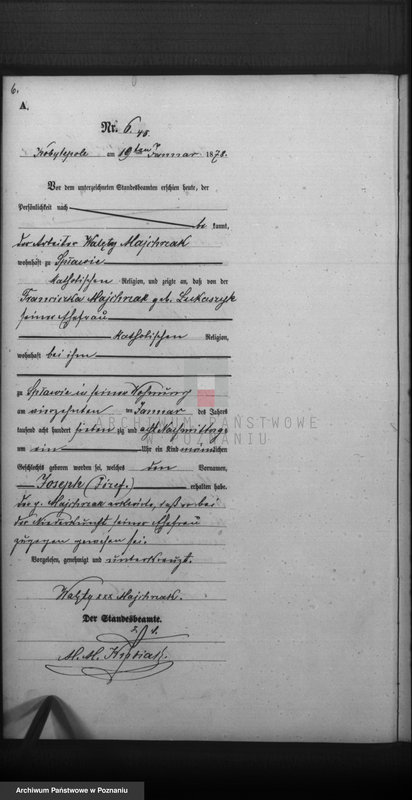 6.
A.
Nr. 6
Kobylepole am 19ten Januar 1878.
Vor dem unterzeichneten Standesbeamten erschien heute, der
Persönlichkeit nach
be kannt,
der Arbeiter Majchrzak
wohnhaft zu Spławie
katholischen Religion, und zeigte an, daß von der
Franciszka Majchrzak geb. Lukaszyk
seiner Ehefrau
katholischen Religion,
wohnhaft bei ihm
zu Spławie in seiner Wohnung
am vierzehnten ten Januar des Jahres
tausend acht hundert sieben zig und acht Nachmittags
um ein Uhr ein Kind männlichen
Geschlechts geboren worden sei, welches den Vornamen,
Joseph (Józef.) erhalten habe.
Der p. Majchrzak erklärte, daß er bei
der Niederkunft seiner Ehefrau
zugegen gewesen sei.
Vorgelesen, genehmigt und unterkreuzt.
xxx Majchrzak.
Der Standesbeamte.
ARCHIWUM PAŃSTWOWE
W POZNANIU
Archiwum Państwowe w Poznaniu